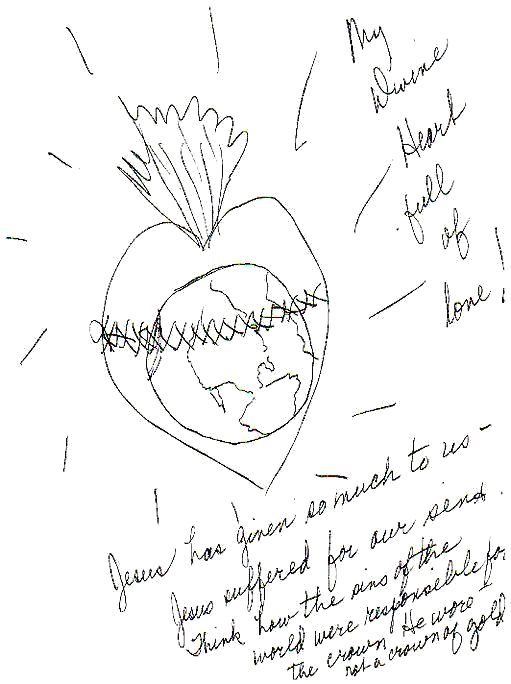 My
Divine
Heart
full
of
love!
Jesus has given so much to us -
Jesus suffered for our sens.
Think how the sins of the
world were responsible for
the crown He wore -
not a crown of gold